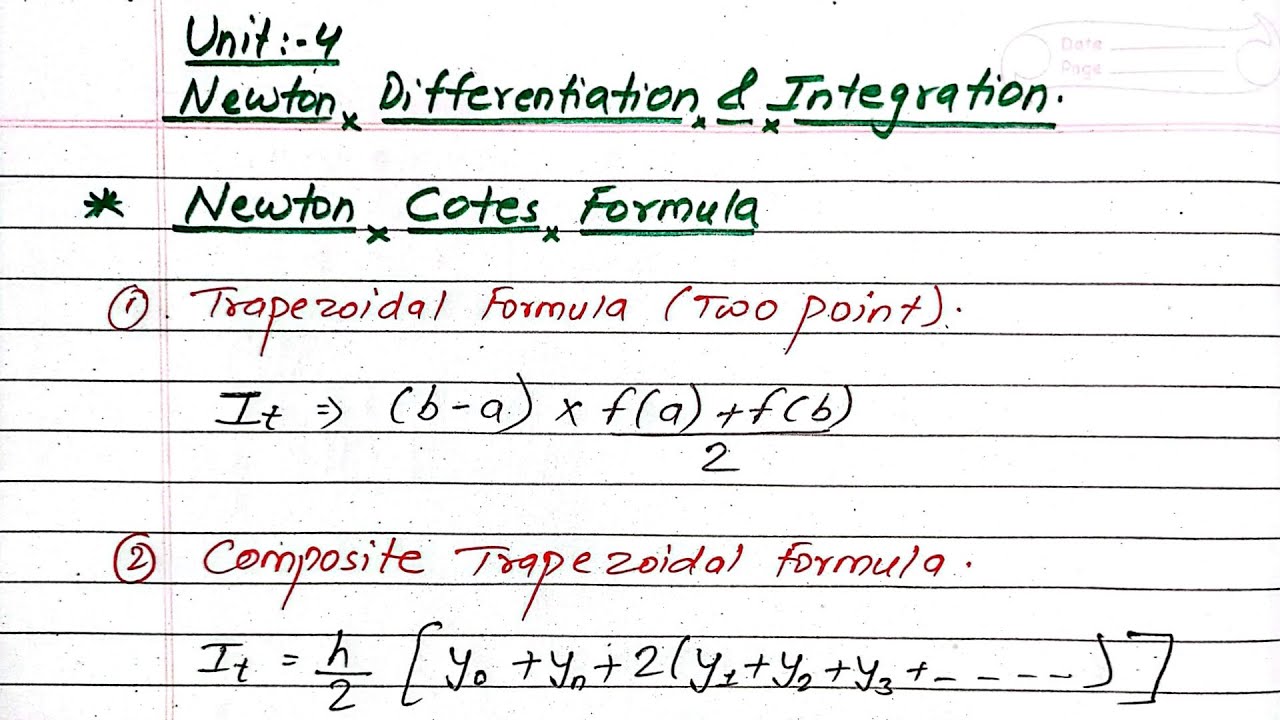 Date
Page
Unit:-4
Newton Differentiation & Integration.
* Newton Cotes Formula
① Trapezoidal Formula (Two point).
It ⇒ (b-a) × f(a)+f(b)
2
② Composite Trapezoidal formula.
It = h/2 [y0 + yn + 2(y1+y2+y3+----)]